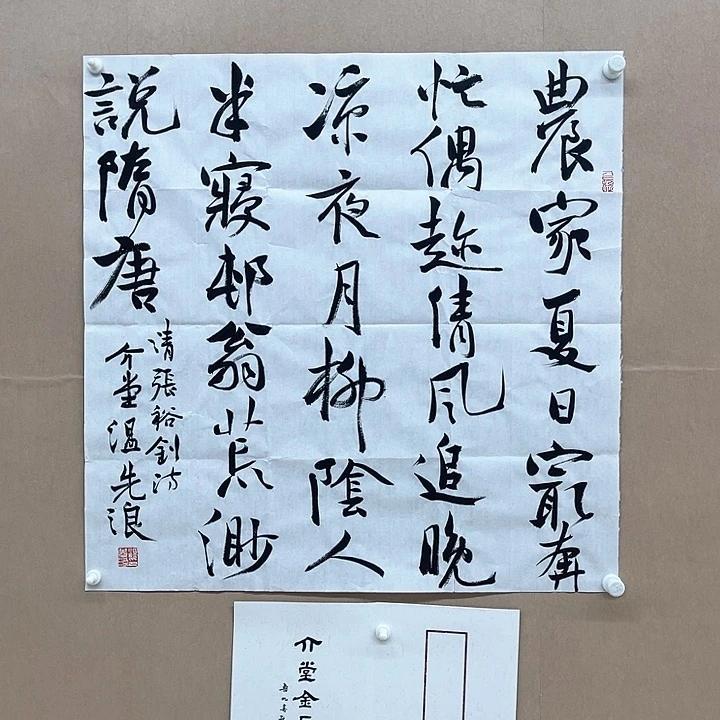 農家夏日㝡奔
忙偶趂清風追晚
凉夜月柳陰人
半寢邨翁荒渺
說隋唐
清張裕釗詩
介堂溫先浪
介堂金